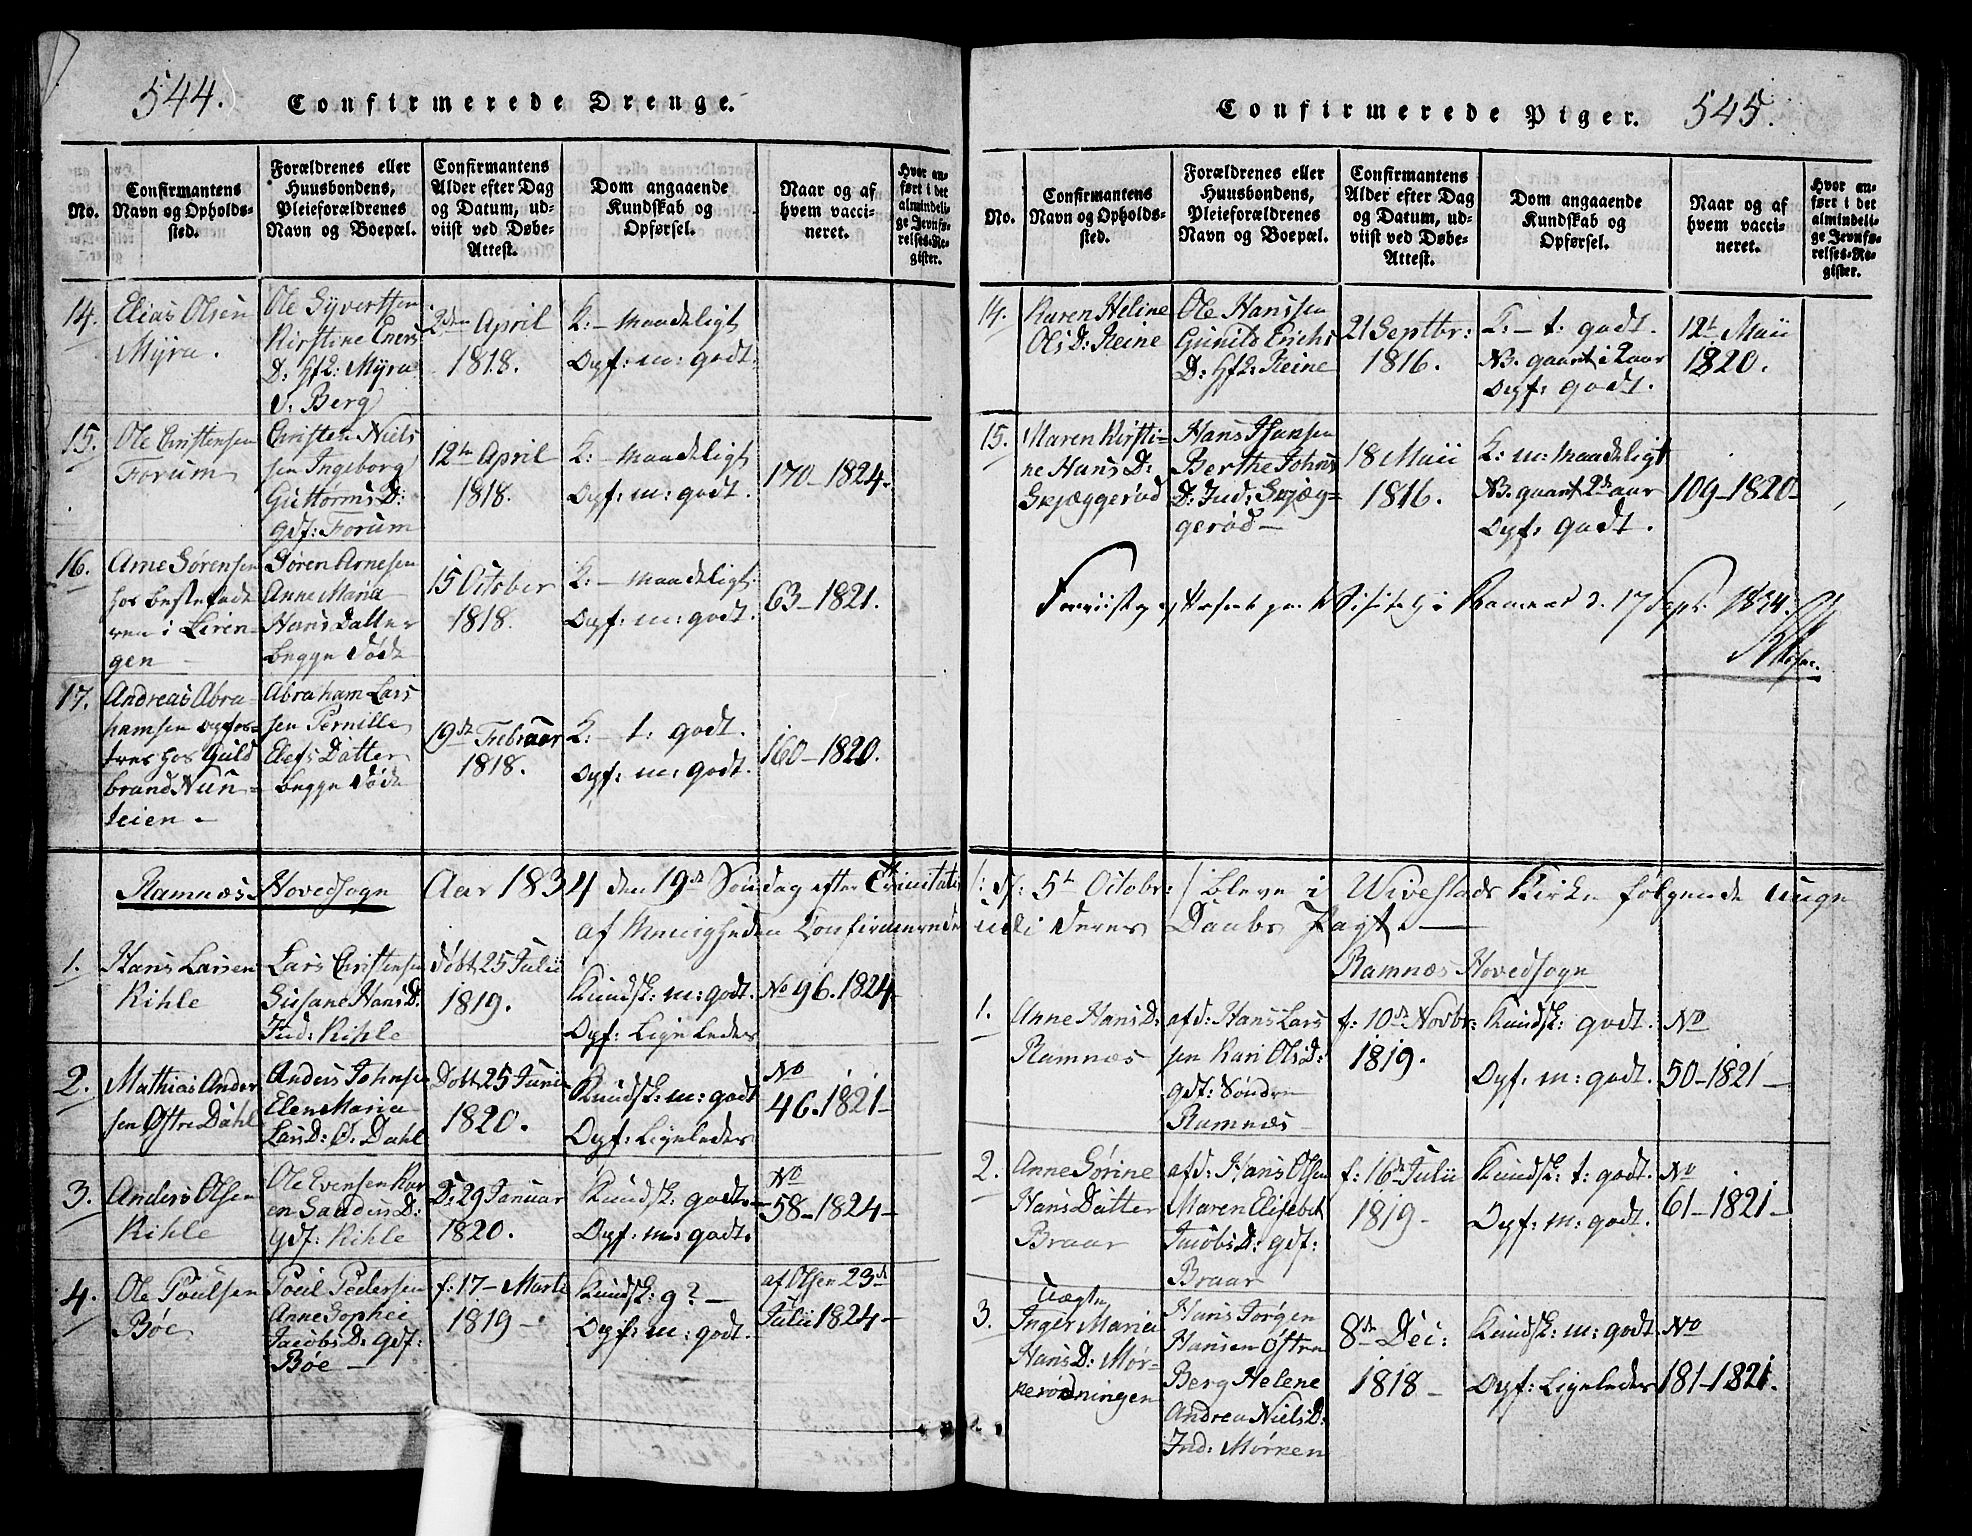 544.
Confirmerede Drenge.
No.
Confirmantens
Navn og Opholds-
sted.
Forældrenes eller
Huusbondens,
Pleieforældrenes
Navn og Boepæl.
Confirmantens
Alder efter Dag
og Datum, ud-
viist ved Døbe-
Attest.
Dom angaaende
Kundskab og
Opførsel.
Naar og af
hvem vacci-
neret.
Hvor an-
ført i det
almindeli-
ge Jevnfø-
relses-Re-
gister.
14.
Elias Olsen
Myra.
Ole Syvertsen
Kirstine Eners
D: Hfl: Myra
v. Berg
2den April
1818.
K: - maadeligt
Opf: m: godt.
15.
Ole Christensen
Forum
Christen Niels
sen Ingeborg
Guttorms D:
gdf: Forum
12te April
1818.
K: - maadeligt
Opf: m: godt.
170-1824.
16.
Arne Sørensen
hos bestefade
ren i Liren-
gen -
Søren Arnesen
Anne Maria
Hans Datter
begge døde
15 October
1818.
K: - maadeligt
Opf: m: godt.
63-1821.
17.
Andreas Abra-
hamsen opfos-
tres hos Guld
brand Nun-
teien -
Abraham Lars
sen Pernille
Elefs Datter
begge døde
19de Februar
1818.
K: - t: godt.
Opf: m: godt.
160-1820.
Ramnæs Hovedsogn Aar 1834 den 19de Søndag efter Trinitatis
af Menigheden Confirmerede
1.
Hans Larsen
Kihle
Lars Christensen
Susane Hans D:
Ind: Kihle
døbt 25 Julii
1819.
Kundsk: m: godt.
Opf: Ligeledes
No 96. 1824-
2.
Mathias Ander
sen Østre Dahl
Anders Johnsen
Elen Maria
Lars D: Ø. Dahl
Døbt 25 Junii
1820.
Kundsk: m: godt
Opf: Ligeledes
No
46. 1821-
3.
Anders Olsen
Kihle
Ole Evensen Kar
en Sanders D:
gdf: Kihle
D: 29 Januar
1820.
Kundsk: godt.
Opf: m: godt.
No
58-1824-
4.
Ole Poulsen
Bøe
Poul Pedersen
Anne Sophie
Jacobs D: gdf:
Bøe -
f: 17 - Marti
1819 -
Kundsk: g? -
Opf: m: godt.
af Olsen 23de
Julii 1824-
Confirmerede Piger.
545.
No.
Confirmantens
Navn og Opholds-
sted.
Forældrenes eller
Huusbondens,
Pleieforældrenes
Navn og Boepæl.
Confirmantens
Alder efter Dag
og Datum, ud-
viist ved Døbe-
Attest.
Dom angaaende
Kundskab og
Opførsel.
Naar og af
hvem vacci-
neret.
Hvor an-
ført i det
almindeli-
ge Jevnfø-
relses-Re-
gister.
14.
Karen Heline
Ols D: Reine
Ole Hanssen
Gunild Erichs
D: Hfl: Reine
21 Septbr:
1816.
K: - t: godt.
NB. gaaet i 2 aar
Opf: godt.
12t Maii
1820.
15.
Maren Kirsti-
ne Hans D:
Skjæggerød
Hans Hansen
Berthe Johns
D: Ind: Skjæg-
gerød -
18 Maii
1816.
K: m: maadeligt
NB. gaaet 2de aar
Opf: godt.
109-1820-
Ramnæs d. 17 Sept. 1834.
/: d: 5t Octobr: / bleve i Wivestads Kirke følgende unge
udi deres Daabs Pagt. -
Ramnæs Hovedsogn
1.
Anne Hans D:
Ramnæs
afd: Hans Lars
sen Kari Ols D:
gdf: Søndre
Ramnæs
f: 10de Novbr:
1819.
Kundsk: godt.
Opf: m: godt.
No
50-1821-
2.
Anne Sørine
Hans Datter
Braar
afd: Hans Olsen
Maren Elisebet
Jacobs D: gdf:
Braar
f: 16de Julii
1819-
Kundsk: t: godt.
Opf: m: godt.
No
61-1821-
3.
Uægte
Inger Maria
Hans D: Mør-
kerødningen
Hans Jørgen
Hansen Østre
Berg Helene
Andrea Niels D:
Ind: Mørken
8de Dec:
1818 -
Kundsk: m: godt.
Opf: Ligeledes
No
181-1821.